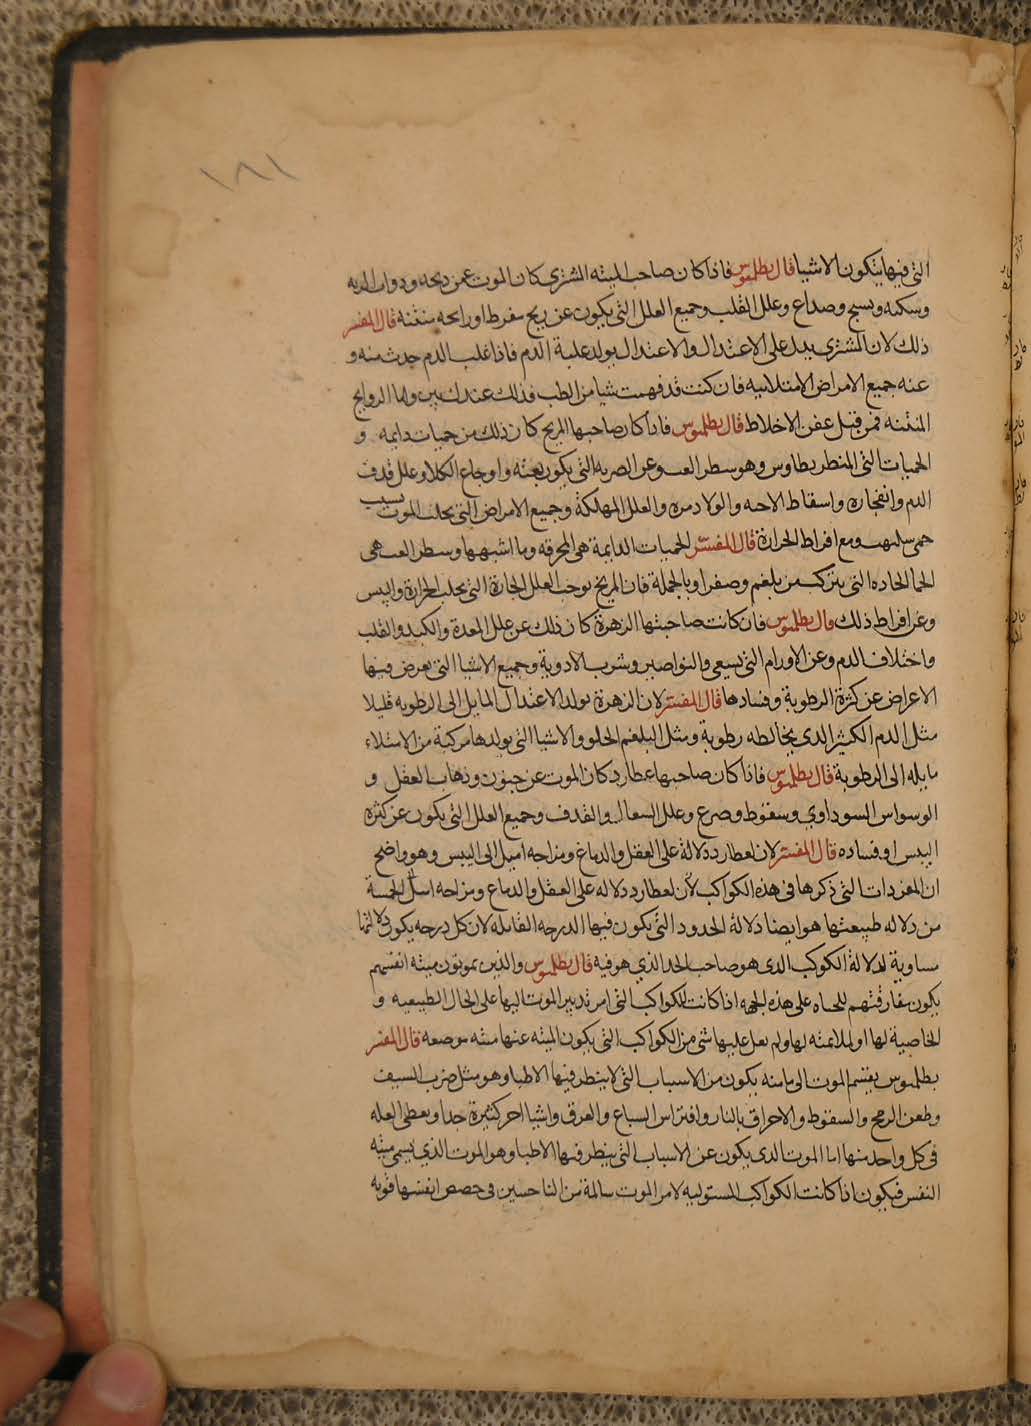 ١٨١
التي فيها يتكون الاشيا قال بطلميوس فاذا كان صاحب الميته المشتري كان الموت عن ذبحه وذوات الريه
وسكته وتشنج وصداع وعلل القلب وجميع العلل التي يكون عن ريح مفرط او رايحه منتنه قال المفسر
ذلك لان المشتري يدل على الاعتدال والاعتدال يولد غلبة الدم فاذا غلب الدم حدث منه و
عنه جميع الامراض الامتلاييه فان كنت قد فهمت شيا من الطب فذلك عندك بين واما الروايح
المنتنه فمن قبل عفن الاخلاط قال بطلميوس فاذا كان صاحبها المريخ كان ذلك من حميات دايمه و
الحميات التي وهو سطر الغب وعن الضربه التي يكون بغتة واوجاع الكلا وعلل قذف
الدم وانفجاره واسقاط الاجنه والولاد مره والعلل المهلكة وجميع الامراض التي تجلب الموت بسبب
حمى ومع افراط الحرارة قال المفسر الحميات الدايمة هي المحرقه وما اشبهها وسطر الغب هي
الحما الحاده التي يتركب من بلغم وصفرا وبالجملة فان المريخ يوجب العلل الحارة التي يجلب الحرارة واليبس
وعن افراط ذلك قال بطلميوس فان كانت صاحبتها الزهرة كان ذلك عن علل المعدة والكبد والقلب
واختلاف الدم وعن الاورام التي يسعى والنواصير وشرب الادوية وجميع الاشيا التي يعرض فيها
الاعراض عن كثرة الرطوبة وفسادها قال المفسر لان الزهرة يولد الاعتدال المايل الى الرطوبه قليلا
مثل الدم الكثير الذي يخالطه رطوبة ومثل البلغم الحلو والاشيا التي يولدها مركبة من الامتلاء
مايله الى الرطوبة قال بطلميوس فاذا كان صاحبها عطارد كان الموت عن جنون وذهاب العقل و
الوسواس السوداوي وسقوط وصرع وعلل السعال والقذف وجميع العلل التي يكون عن كثرة
اليبس او فساده قال المفسر لان لعطارد دلالة على العقل والدماغ ومزاجه اميل الى اليبس وهو واضح
ان المفردات التي ذكرها في هذه الكواكب لان لعطارد دلاله على العقل والدماغ ومزاجه الخمسة
من دلاله طبيعتها هو ايضا دلالة الحدود التي يكون فيها الدرجه القابله لان كل درجه يكون دلالتها
مساوية لدلالة الكوكب الذي هو صاحب الحد الذي هو فيه قال بطلميوس والذين يموتون ميته انفسهم
يكون مفارقتهم للحياه على هذه الجهه اذا كانت الكواكب التي امر تدبير الموت اليها على الحال الطبيعيه و
الخاصية لها او الملايمته لها ولم يعل عليها شي من الكواكب التي يكون الميته عنها موضعه قال المفسر
بطلميوس يقسم الموت الى يكون من الاسباب التي لا ينظر فيها الاطبا وهو مثل ضرب السيف
وطعن الرمح والسقوط والاحراق بالنار وافتراس السباع والغرق واشيا اخر كثيرة جدا ويعطى العله
في كل واحد منها اما الموت الذي يكون عن الاسباب التي ينظر فيها الاطبا وهو الموت الذي يسمى ميته
النفس فيكون اذا كانت الكواكب المستوليه لامر الموت سالمة من الناحسين في حصص انفسها قويه